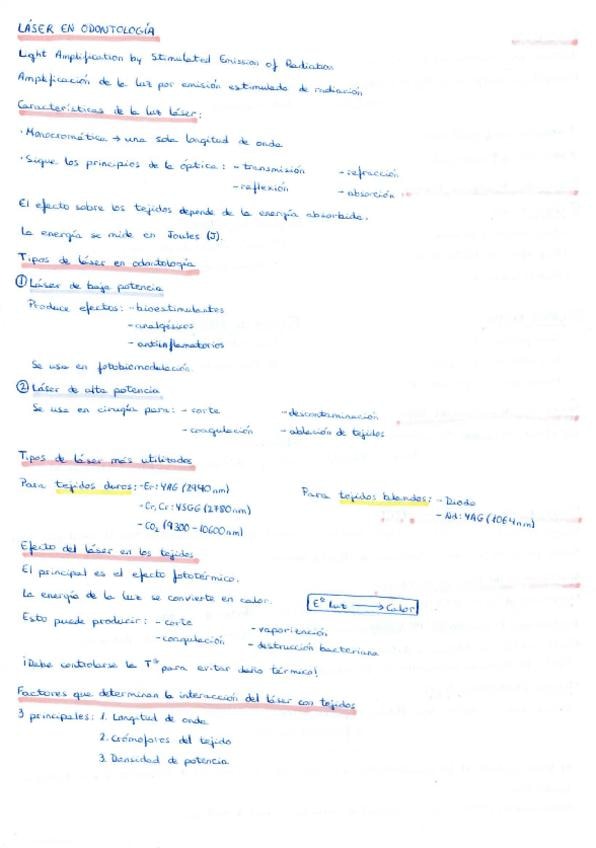 LÁSER EN ODONTOLOGÍA
Light Amplification by Stimulated Emission of Radiation
Amplificación de la luz por emisión estimulada de radiación
Características de la luz láser:
· Monocromática → una sola longitud de onda
· Sigue los principios de la óptica: - transmisión - refracción
- reflexión - absorción
El efecto sobre los tejidos depende de la energía absorbida.
La energía se mide en Joules (J).
Tipos de láser en odontología
① Láser de baja potencia
Produce efectos: - bioestimulantes
- analgésicos
- antiinflamatorios
Se usa en fotobiomodulación.
② Láser de alta potencia
Se usa en cirugía para: - corte - descontaminación
- coagulación - ablación de tejidos
Tipos de láser más utilizados
Para tejidos duros: - Er:YAG (2940 nm) Para tejidos blandos: - Diodo
- Cr,Cr:YSGG (2780 nm) - Nd:YAG (1064 nm)
- CO₂ (9300-10600 nm)
Efecto del láser en los tejidos
El principal es el efecto fototérmico.
La energía de la luz se convierte en calor. Eª Luz → Calor
Esto puede producir: - corte - vaporización
- coagulación - destrucción bacteriana
¡Debe controlarse la Tª para evitar daño térmico!
Factores que determinan la interacción del láser con tejidos
3 principales: 1. Longitud de onda
2. Cromóforos del tejido
3. Densidad de potencia